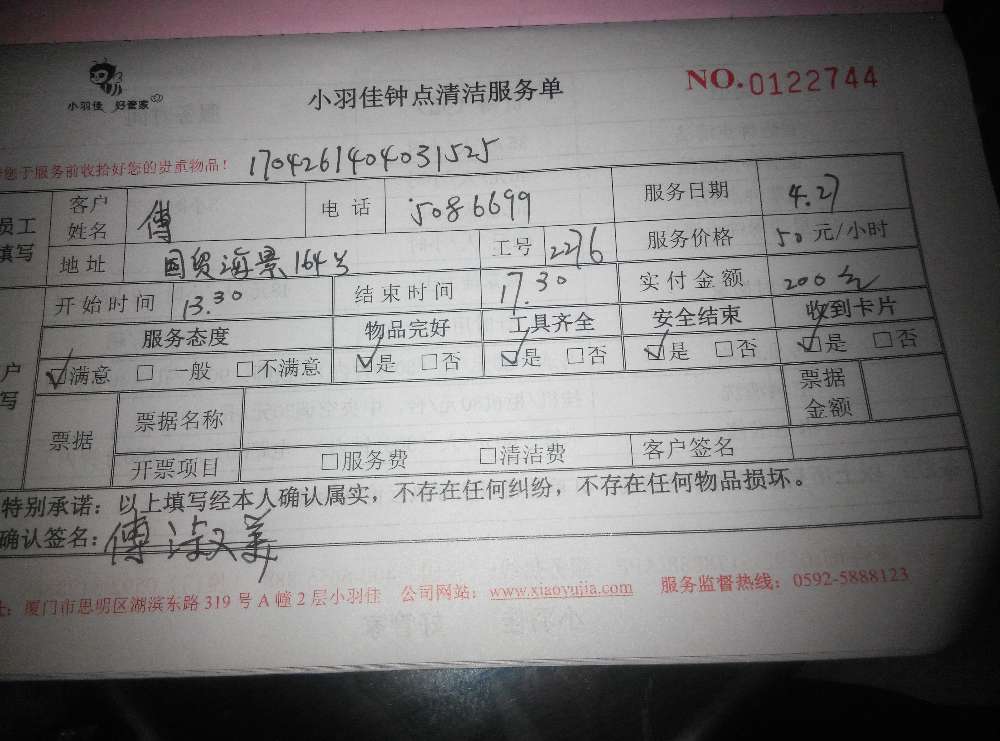 小羽佳 好管家
小羽佳钟点清洁服务单
NO.0122744
您于服务前收拾好您的贵重物品！ 1704261404031525
员工填写
客户姓名 傅 电话 5086699 服务日期 4.27
地址 国贸海景164号 工号 2276 服务价格 50元/小时
开始时间 13.30 结束时间 17.30 实付金额 200元
服务态度 物品完好 工具齐全 安全结束 收到卡片
户写
☑满意 □一般 □不满意 ☑是 □否 ☑是 □否 ☑是 □否 ☑是 □否
票据 票据名称 票据金额
开票项目 □服务费 □清洁费 客户签名
特别承诺：以上填写经本人确认属实，不存在任何纠纷，不存在任何物品损坏。
确认签名：傅淑美
址：厦门市思明区湖滨东路319号A幢2层小羽佳 公司网站：www.xiaoyujia.com 服务监督热线：0592-5888123